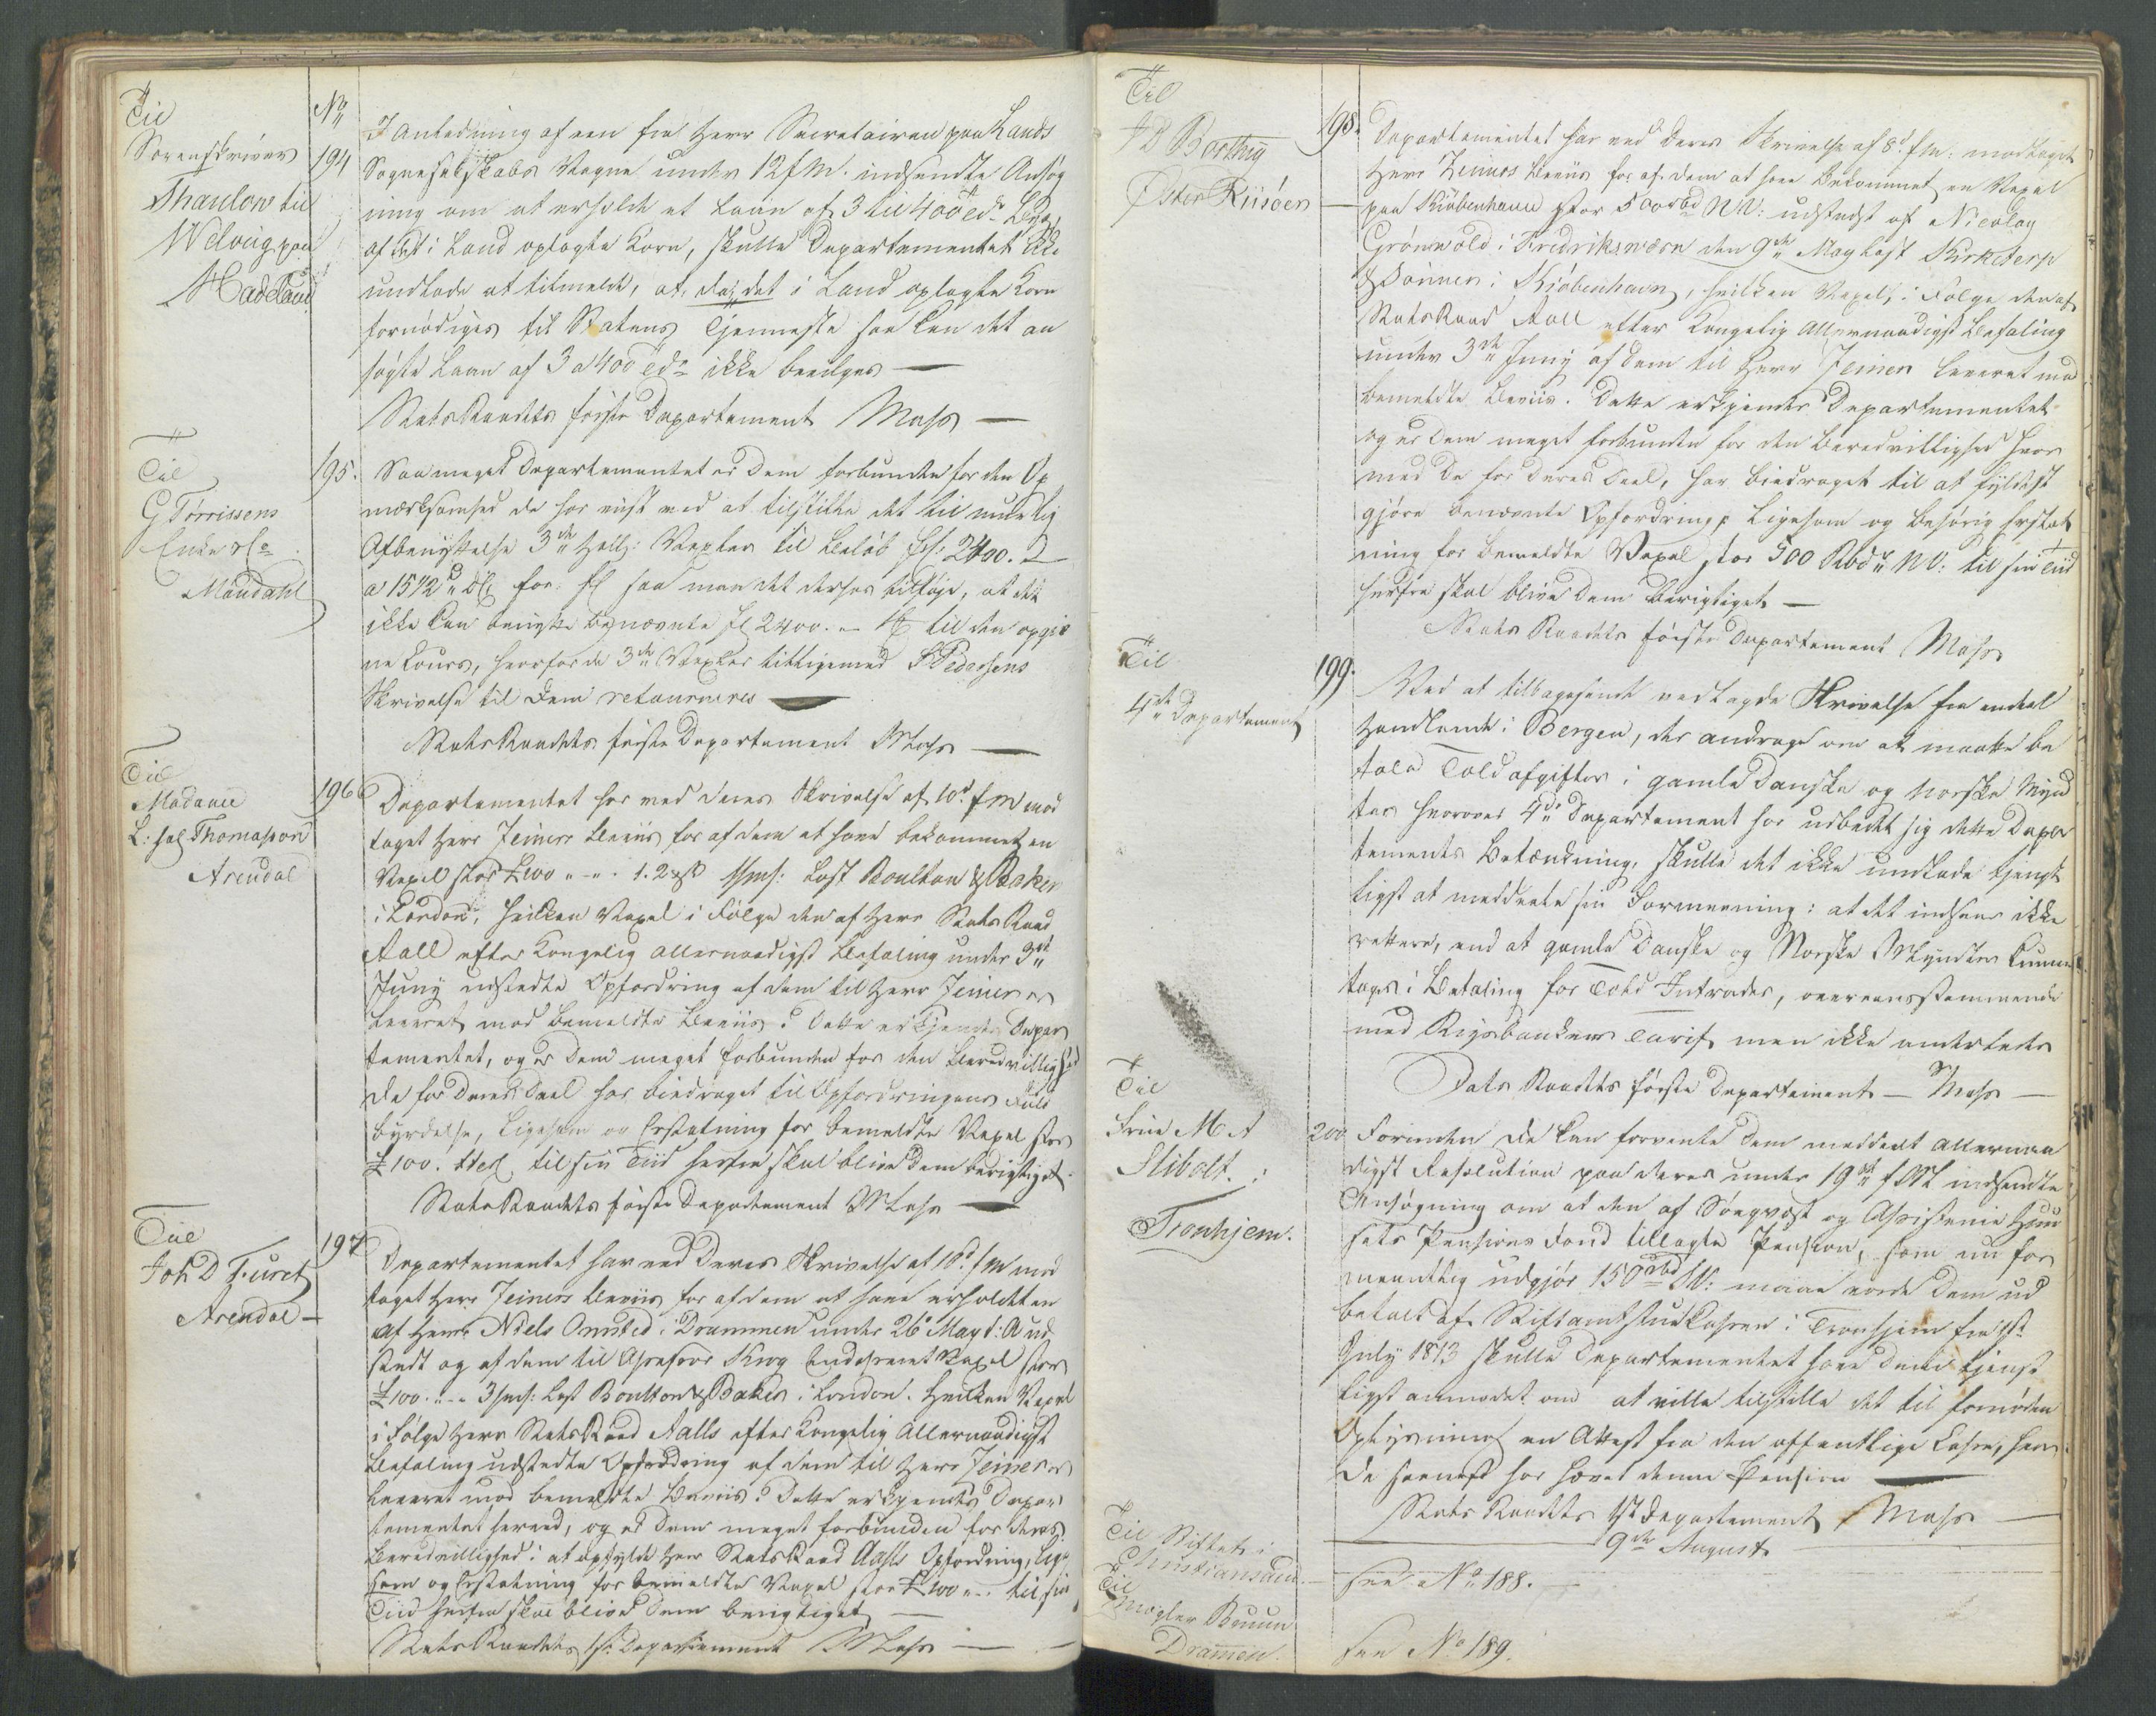 Til
Sorenskriver
Thaulow til
Melvig paa
Hadeland
No
194
I Anledning af een fra Herr Secretairen paa Lands
Sogneselskabs Vegne under 12 f. M. indsendte Ansøg
ning om at erholde et Laan af 3 til 400
af det i Land oplagte Korn, skulle Departementet ikke
undlade at tilmelde, at, da det i Land oplagte Korn
fornødiges til Statens Tjenneste saa kan det an
søgte Laan af 3 a 400 ikke bevilges —
StatsRaadets første Departement Moss —
Til
G Tørrissens
Enke & Co
Mandahl
195.
Saa meget Departementet er Dem forbunden for den Op
mærksomhed de har viist ved at tilstille det til muelig
Afbenyttelse 3de Holl: Vexler til Beløb 2400.
a 15 1/2 for saa maa det derhos tilføie, at det
ikke kan benytte benævnte fl 2400. til den opgiv
ne Cours, hvorfor de 3de Vexler tilligemed Pedersens
Skrivelse til Dem retourneres —
StatsRaadets første Departement Moss —
Til
Madame
L: sal Thomasson
Arendal
196
Departementet har med deres Skrivelse af 10d. f M mod
taget Herr Zeiners Beviis for af dem at have bekommet en
Vexel stor £ 100 Boulton & Baker
i London, hvilken Vexel i Følge den af Herr StatsRaad
Aall efter Kongelig allernaadigst Befaling under 3de
Juny udstedte Opfordring af dem til Herr Zeiner er
leveret mod bemeldte Beviis. Dette erkjender Depar
tementet, og er Dem meget forbunden for den Beredvillighed
De for Deres Deel har bidraget til Opfordringens Fuld
byrdelse, ligesom og Erstatning for bemeldte Vexel stor
£ 100. Sterl til sin Tiid herfra skal blive Dem berigtiget.
StatsRaadets første Departement Moss —
Til
Joh D Furst
Arendal —
197
Departementet har ved Deres Skrivelse af 10d. f M mod
taget Herr Zeiners Beviis for af dem at have erholdt en
af Herr Niels Omsted i Drammen under 26 May d: A ud
stedt og af dem til Assessor Krog endosseret Vexel stor
£ 100. Boulton & Baker i London. Hvilken Vexel
i Følge Herr StatsRaad Aalls efter Kongelig Allernaadigst
Befaling udstedte Opfordring af dem til Herr Zeiner er
leveret mod bemeldte Beviis. Dette erkjender Depar
tementet herved, og er Dem meget forbunden for deres
Beredvillighed i at opfylde Herr StatsRaad Aalls Opfordring, lige
som og Erstatning for bemeldte Vexel stor £ 100 til sin
Tiid herfra skal blive Dem berigtiget —
StatsRaadets 1ste Departement Moss —
Til
Barthug
Øster Riisøer
198.
Departementet har ved Deres Skrivelse af 8d. f M: modtaget
Herr Zeiners Beviis for af dem at have bekommet en Vexel
paa Kiøbenhavn stor 500 rbd NV: udstedt af Nicolay
Grønwold i Fredriksværn den 9de May Kirketerp
& Sønner i Kiøbenhavn, hvilken Vexel, i Følge den af
StatsRaad Aall efter Kongelig Allernaadigst Befaling
under 3de Juny af Dem til Herr Zeiner leveret mod
bemeldte Beviis. Dette erkjender Departementet
og er Dem meget forbunden for den Beredvillighed hvor
med De for Deres Deel, har bidraget til at fyldest
gjøre benævnte Opfordring, ligesom og behørig Erstat
ning for bemeldte Vexel stor 500 Rbd NV: til sin Tiid
herfra skal blive Dem berigtiget —
StatsRaadets første Departement Moss
Til
4de Departement
199.
Ved at tilbagesende vedlagde Skrivelse fra endeel
Handlende i Bergen, der andrage om at maatte be
tale Toldafgifter i gamle Danske og Norske Mynd
ter hvorover 4de Departement har udbedt sig dette Depar
tements Betænkning, skulle det ikke undlade tjenst
ligst at meddeele sin Formeening: at det indsees ikke
rettere, end at gamle Danske og Norske Myndter kunne
tages i Betaling for Told Intrader, overeensstemmende
med Rigsbankens Tarif men ikke anderledes
StatsRaadets første Departement — Moss —
Til
Frue M A
Stibolt.
Tronhjem.
200
Forinden De kan forvente Dem meddeelt allernaa
digst Resolution paa deres under 19de f M indsendte
Ansøgning om at den af Søeqvæst og
Pensions Fond tillagte Pension, som nu for
meentlig udgjør 150 rbd maae vorde Dem ud
betalt af Stiftamtstuekassen i Tronhjem fra 1st
July 1813 skulle Departementet have Dem tjenst
ligst anmodet om at ville tilstille det til fornøden
Oplysning en Attest fra den offentlige Casse, hvor
De har hævet denne Pension —
StatsRaadets 1ste Departement Moss —
9de August
Til Stiftet i
Christiansand
see No 188.
Til
Mægler Bruun
Dramen.
see No 189.